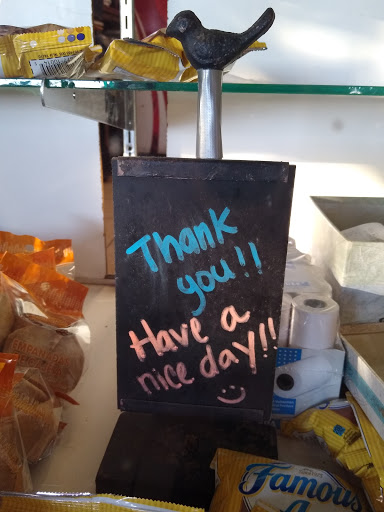 Thank
you!!
Have a
nice day!!
Famous